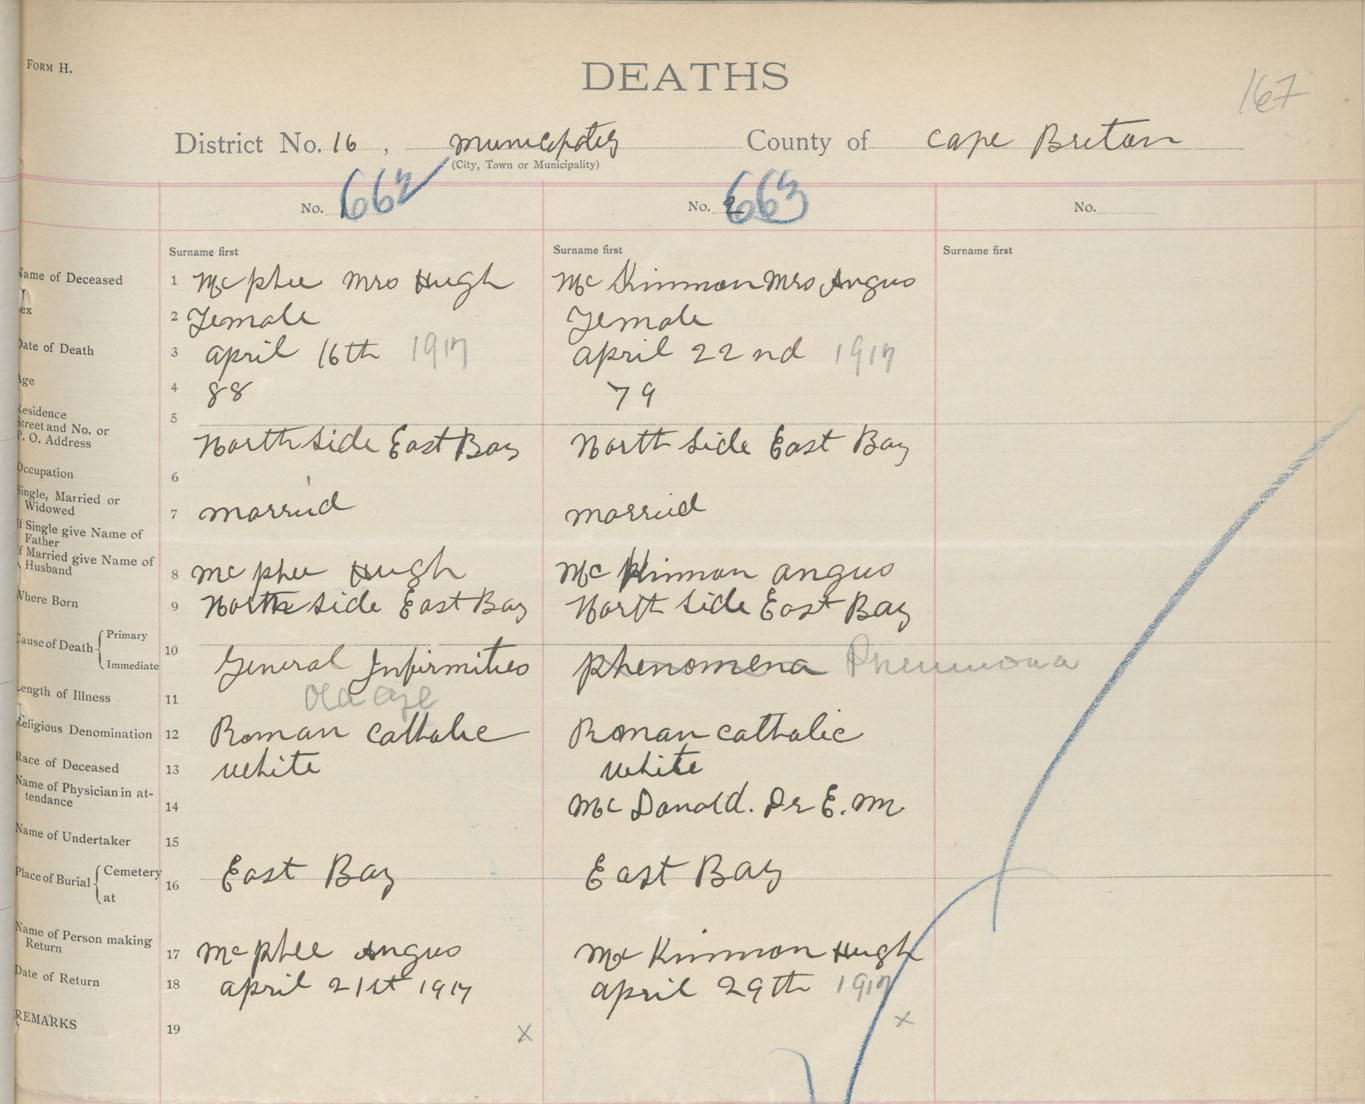 FORM H.
DEATHS
167
District No. 16, Municipality County of Cape Breton
(City, Town or Municipality)
No. 662 No. 2 663 No.
Surname first Surname first Surname first
Name of Deceased 1 McPhee Mrs Hugh McKinnon Mrs Angus
Sex 2 Female Female
Date of Death 3 april 16th 1917 april 22nd 1917
Age 4 88 79
Residence
Street and No. or 5
P. O. Address North Side East Bay North Side East Bay
Occupation 6
Single, Married or
Widowed 7 married married
If Single give Name of
Father
If Married give Name of
Husband 8 McPhee Hugh McKinnon angus
Where Born 9 North Side East Bay North Side East Bay
Cause of Death { Primary 10
Immediate General Infirmities phenomena Pneumona
Length of Illness 11 old age
Religious Denomination 12 Roman catholic Roman catholic
Race of Deceased 13 white white
Name of Physician in at-
tendance 14 McDonald. Dr E. M.
Name of Undertaker 15
Place of Burial { Cemetery 16 East Bay East Bay
at
Name of Person making
Return 17 McPhee Angus McKinnon Hugh
Date of Return 18 april 21st 1917 april 29th 1917
REMARKS 19 x x